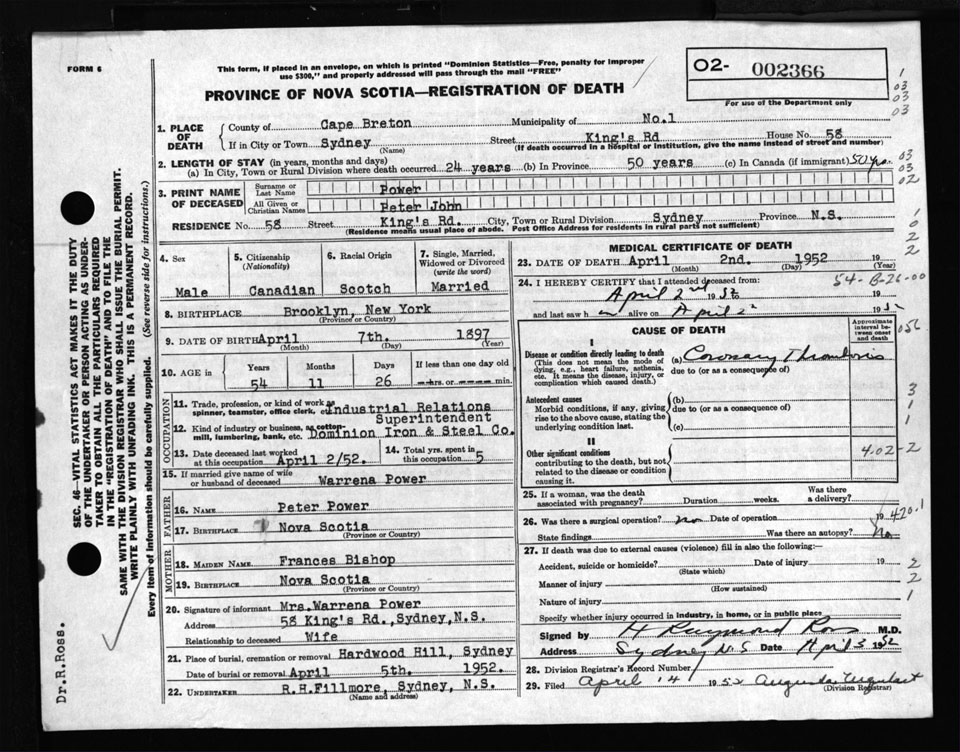 FORM 6
This form, if placed in an envelope, on which is printed "Dominion Statistics—Free, penalty for improper
use $300," and properly addressed will pass through the mail "FREE"
PROVINCE OF NOVA SCOTIA—REGISTRATION OF DEATH
O2- 002366
For use of the Department only
1. PLACE OF DEATH
County of Cape Breton Municipality of No.1
If in City or Town Sydney (Name) Street King's Rd House No. 58
(If death occurred in a hospital or institution, give the name instead of street and number)
2. LENGTH OF STAY (in years, months and days)
(a) In City, Town or Rural Division where death occurred 24 years (b) In Province 50 years (c) In Canada (if immigrant) 50 yrs.
3. PRINT NAME OF DECEASED
Surname or Last Name Power
All Given or Christian Names Peter John
RESIDENCE No. 58 Street King's Rd. City, Town or Rural Division Sydney Province N.S.
(Residence means usual place of abode. Post Office Address for residents in rural parts not sufficient)
4. Sex
Male
5. Citizenship (Nationality)
Canadian
6. Racial Origin
Scotch
7. Single, Married, Widowed or Divorced (write the word)
Married
8. BIRTHPLACE Brooklyn, New York
(Province or Country)
9. DATE OF BIRTH April 7th. 1897
(Month) (Day) (Year)
10. AGE in
Years Months Days If less than one day old
54 11 26 hrs or min.
OCCUPATION
11. Trade, profession, or kind of work as
spinner, teamster, office clerk, etc Industrial Relations
Superintendent
12. Kind of industry or business, as cotton-
mill, lumbering, bank, etc. Dominion Iron & Steel Co.
13. Date deceased last worked
at this occupation April 2/52.
14. Total yrs. spent in
this occupation 5
15. If married give name of wife
or husband of deceased Warrena Power
FATHER
16. NAME Peter Power
17. BIRTHPLACE Nova Scotia
(Province or Country)
MOTHER
18. MAIDEN NAME Frances Bishop
19. BIRTHPLACE Nova Scotia
(Province or Country)
20. Signature of informant Mrs.Warrena Power
Address 58 King's Rd.,Sydney,N.S.
Relationship to deceased Wife
21. Place of burial, cremation or removal Hardwood Hill, Sydney
Date of burial or removal April 5th. 1952.
22. UNDERTAKER R.H.Fillmore, Sydney, N.S.
(Name and address)
MEDICAL CERTIFICATE OF DEATH
23. DATE OF DEATH April 2nd. 1952
(Month) (Day) (Year)
24. I HEREBY CERTIFY that I attended deceased from 54-B-26-00
April 2nd 1952 to 19
and last saw h m alive on April 2 1952
CAUSE OF DEATH
Approximate interval between onset and death
I
Disease or condition directly leading to death
(This does not mean the mode of
dying, e.g., heart failure, asthenia,
etc. It means the disease, injury, or
complication which caused death.)
(a) Coronary Thrombosis
due to (or as a consequence of)
Antecedent causes
Morbid conditions, if any, giving
rise to the above cause, stating the
underlying condition last.
(b)
due to (or as a consequence of)
(c)
II
Other significant conditions
contributing to the death, but not
related to the disease or condition
causing it.
4-02-2
25. If a woman, was the death
associated with pregnancy? Duration weeks. Was there
a delivery?
26. Was there a surgical operation? no Date of operation 19 420.1
State findings Was there an autopsy? No
27. If death was due to external causes (violence) fill in also the following:—
Accident, suicide or homicide? Date of injury 19
(State which)
Manner of injury
(How sustained)
Nature of injury
Specify whether injury occurred in industry, in home, or in public place
Signed by H Raymond Ross M.D.
Address Sydney N.S Date April 3 1952
28. Division Registrar's Record Number
29. Filed April 14 1952 Augunda Urquhart
(Division Registrar)
1
03
03
03
03
03
02
1
0
2
2
056
3
1
1
2
2
1
SEC. 46—VITAL STATISTICS ACT MAKES IT THE DUTY
OF THE UNDERTAKER OR PERSON ACTING AS UNDER-
TAKER TO OBTAIN ALL THE PARTICULARS REQUIRED
IN THE "REGISTRATION OF DEATH" AND TO FILE THE
SAME WITH THE DIVISION REGISTRAR WHO SHALL ISSUE THE BURIAL PERMIT.
WRITE PLAINLY WITH UNFADING INK. THIS IS A PERMANENT RECORD.
Every item of information should be carefully supplied. (See reverse side for instructions.)
Dr.R.Ross.